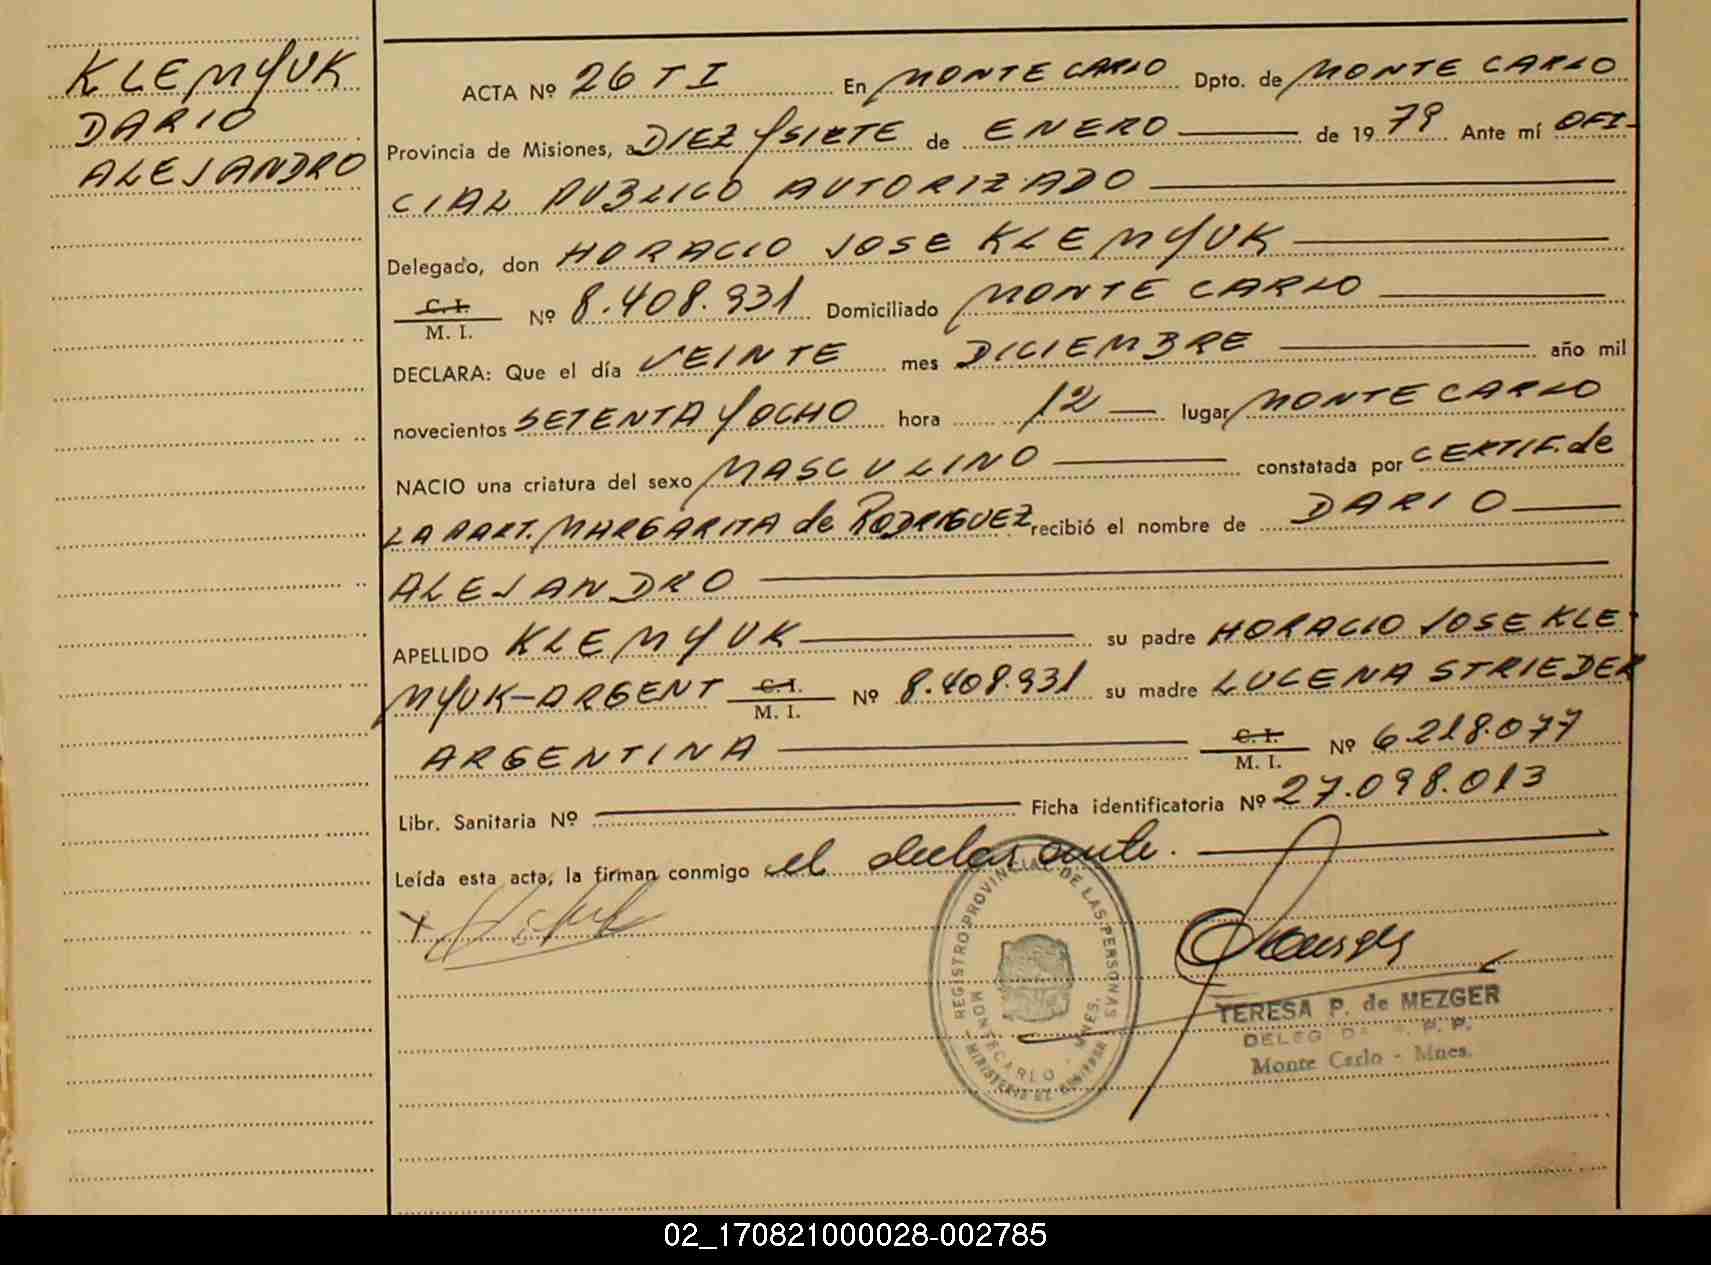 KLEMYUK
DARIO
ALEJANDRO
ACTA Nº 26 T I En MONTE CARLO Dpto. de MONTE CARLO
Provincia de Misiones, a DIEZ Y SIETE de ENERO de 19 79 Ante mí OFI-
CIAL PUBLICO AUTORIZADO
Delegado, don HORACIO JOSE KLEMYUK
C. I.
M. I. Nº 8.408.931 Domiciliado MONTE CARLO
DECLARA: Que el día VEINTE mes DICIEMBRE año mil
novecientos SETENTA Y OCHO hora 12 lugar MONTE CARLO
NACIO una criatura del sexo MASCULINO constatada por CERTIF. de
LA PART. MARGARITA de RODRIGUEZ recibió el nombre de DARIO
ALEJANDRO
APELLIDO KLEMYUK su padre HORACIO JOSE KLE-
MYUK-ARGENT C. I. M. I. Nº 8.408.931 su madre LUCENA STRIEDER
ARGENTINA C. I. M. I. Nº 6.218.077
Libr. Sanitaria Nº Ficha identificatoria Nº 27.098.013
Leída esta acta, la firman conmigo el declarante.
REGISTRO PROVINCIAL DE LAS PERSONAS
MONTECARLO - MNES.
TERESA P. de MEZGER
Monte Carlo - Mnes.
02_170821000028-002785